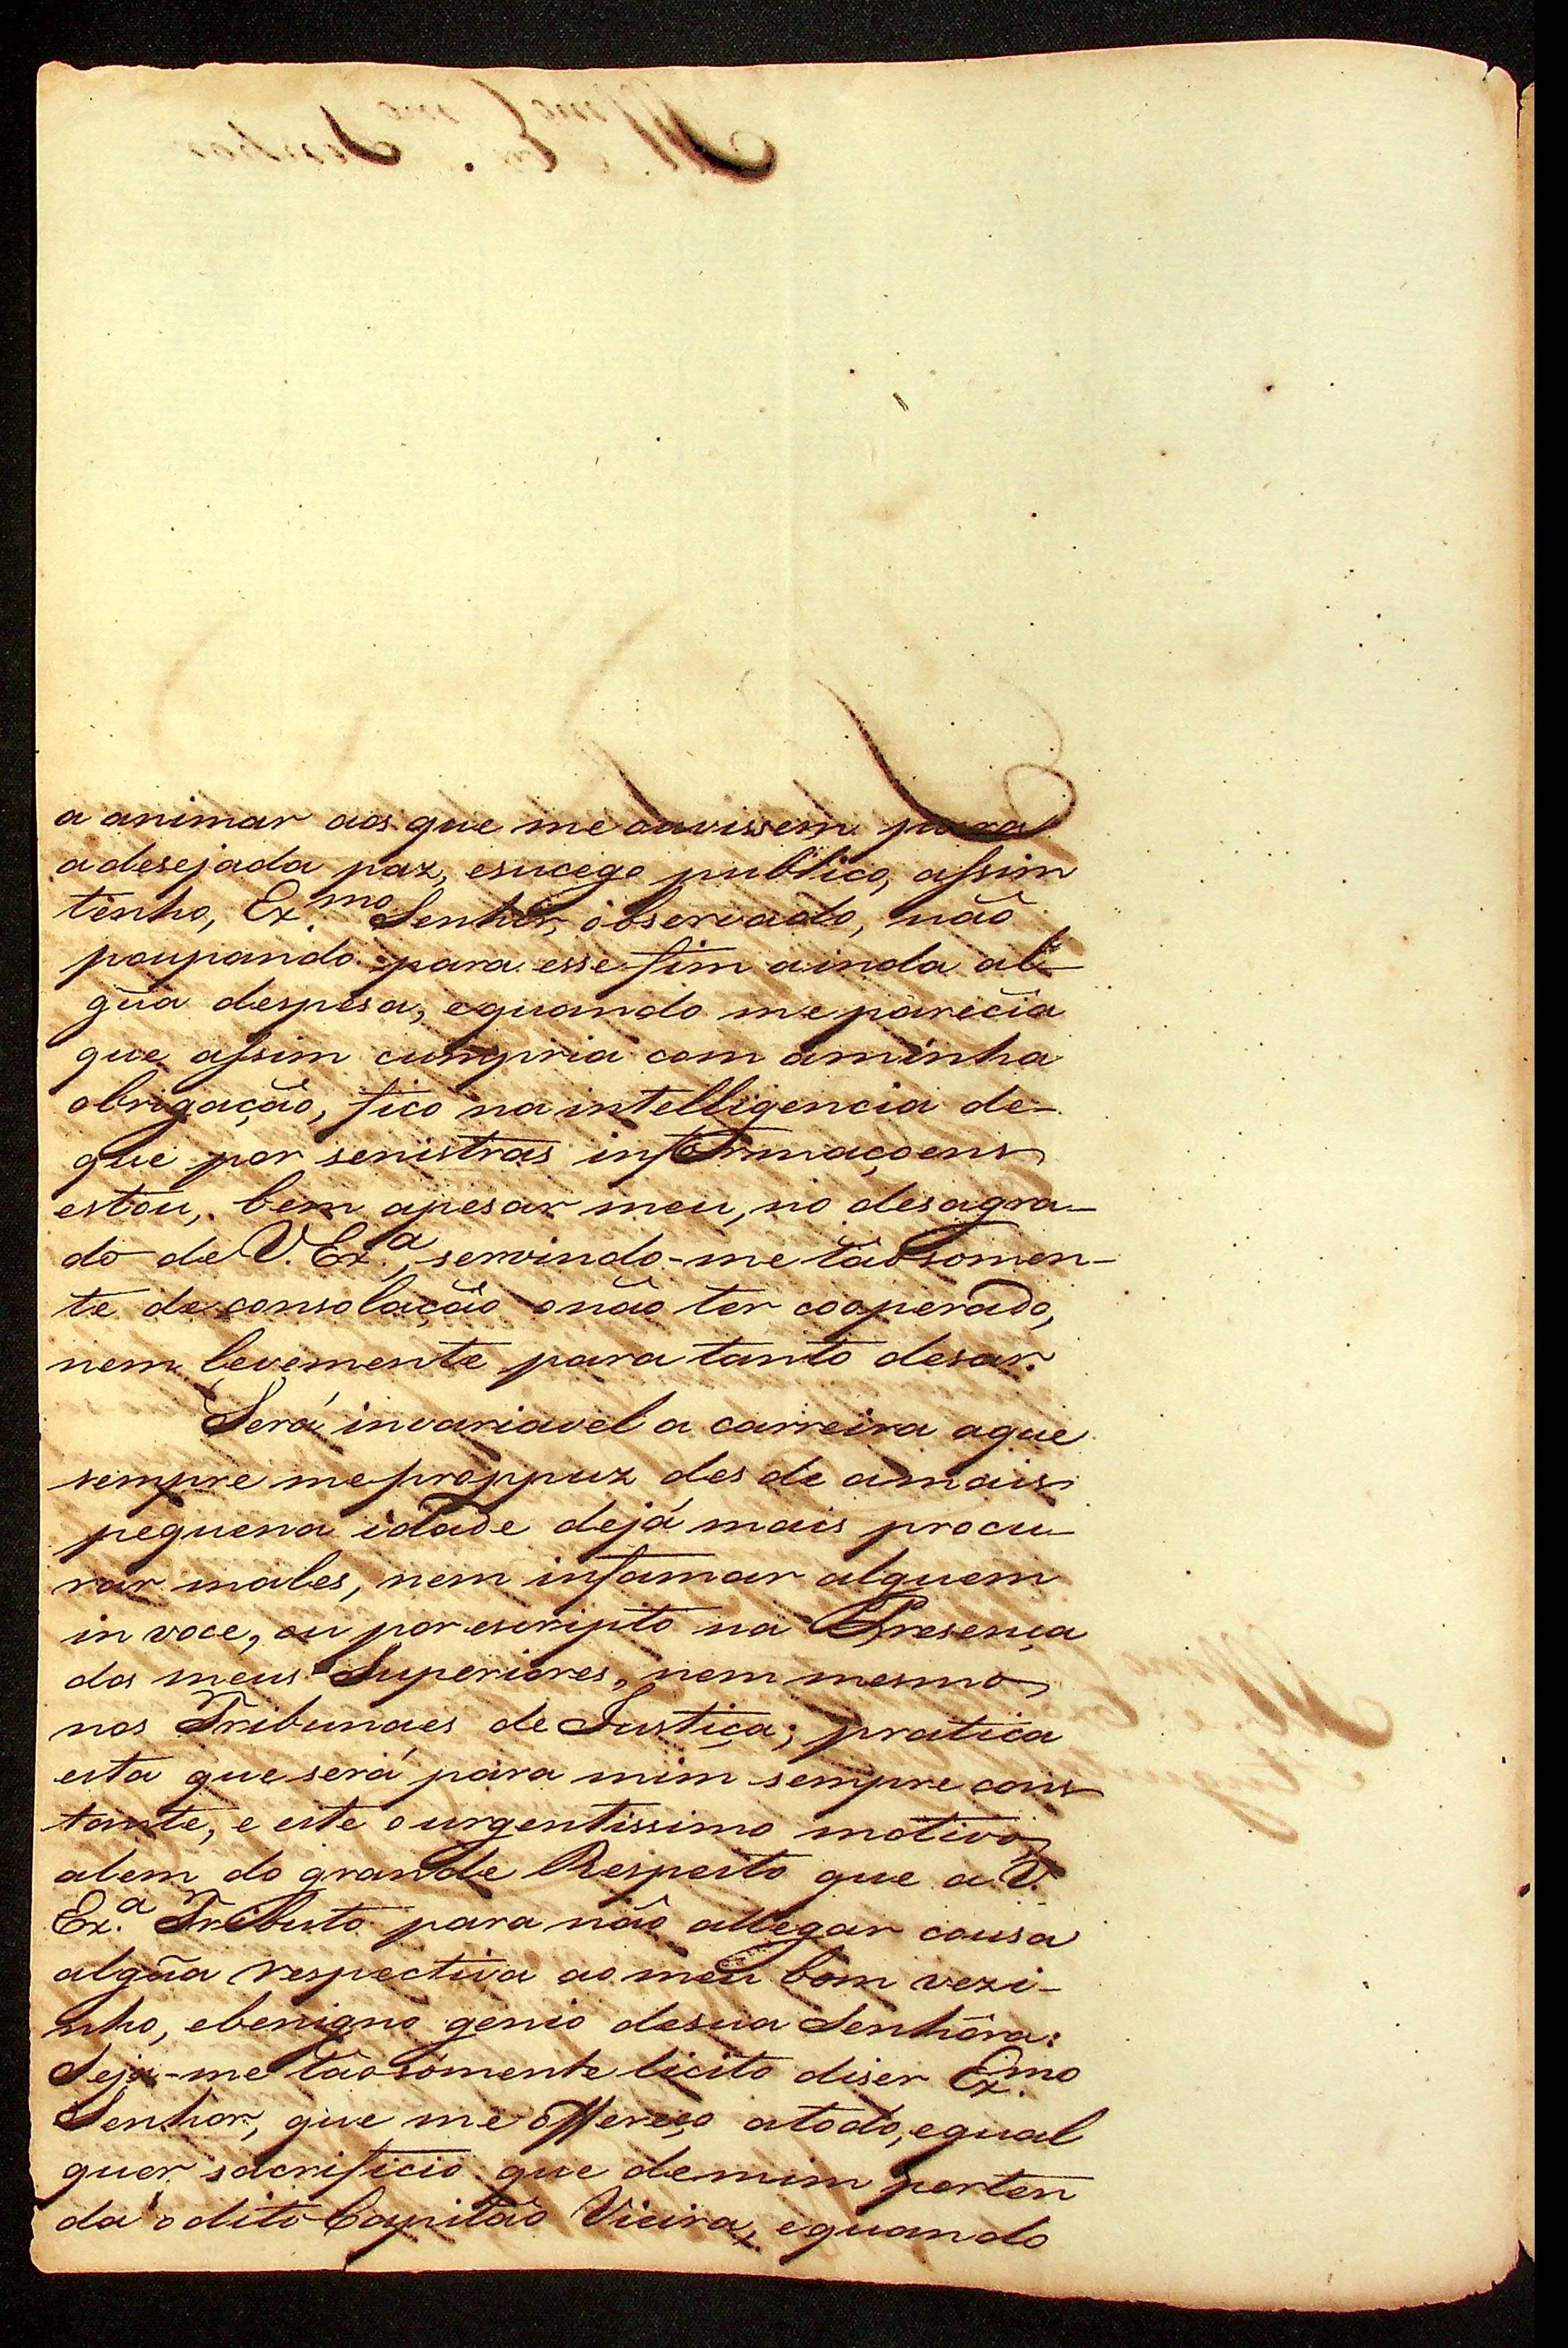 a animar aos que me ouvissem para
adesejada paz, esucego publico, assim
tenho, Ex.mo Senhor, observado, não
poupando para esse fim ainda al-
gũa despesa, equando me parecia
que assim cumpria com aminha
obrigação, fico na intelligencia de-
que por senistras informaçoens
estou, bem apesar meu, no desagra-
do de V. Ex.a, servindo-me tão somen-
te de consolação onão ter cooperado,
nem levemente para tanto desar.
Será invariavel a carreira aque
sempre me proppuz des de amais
pequena idade dejá mais procu-
rar males, nem infamar alguem
in voce, ou por escripto na Presença
dos meus Superiores, nem mesmo
nos Tribunaes de Justiça; pratica
esta que será para mim sempre cons
tante, e este ourgentissimo motivo,
alem do grande Respeito que a V.
Ex.a Tributo para não allegar cousa
algũa respectiva ao meu bom vezi-
nho, ebenigno genio desua Senhóra:
Seja-me tão sómente licito diser Ex.mo
Senhor, que me offereço atodo, equal
quer sacrificio que demim perten
da o dito Capitão Vieira, equando